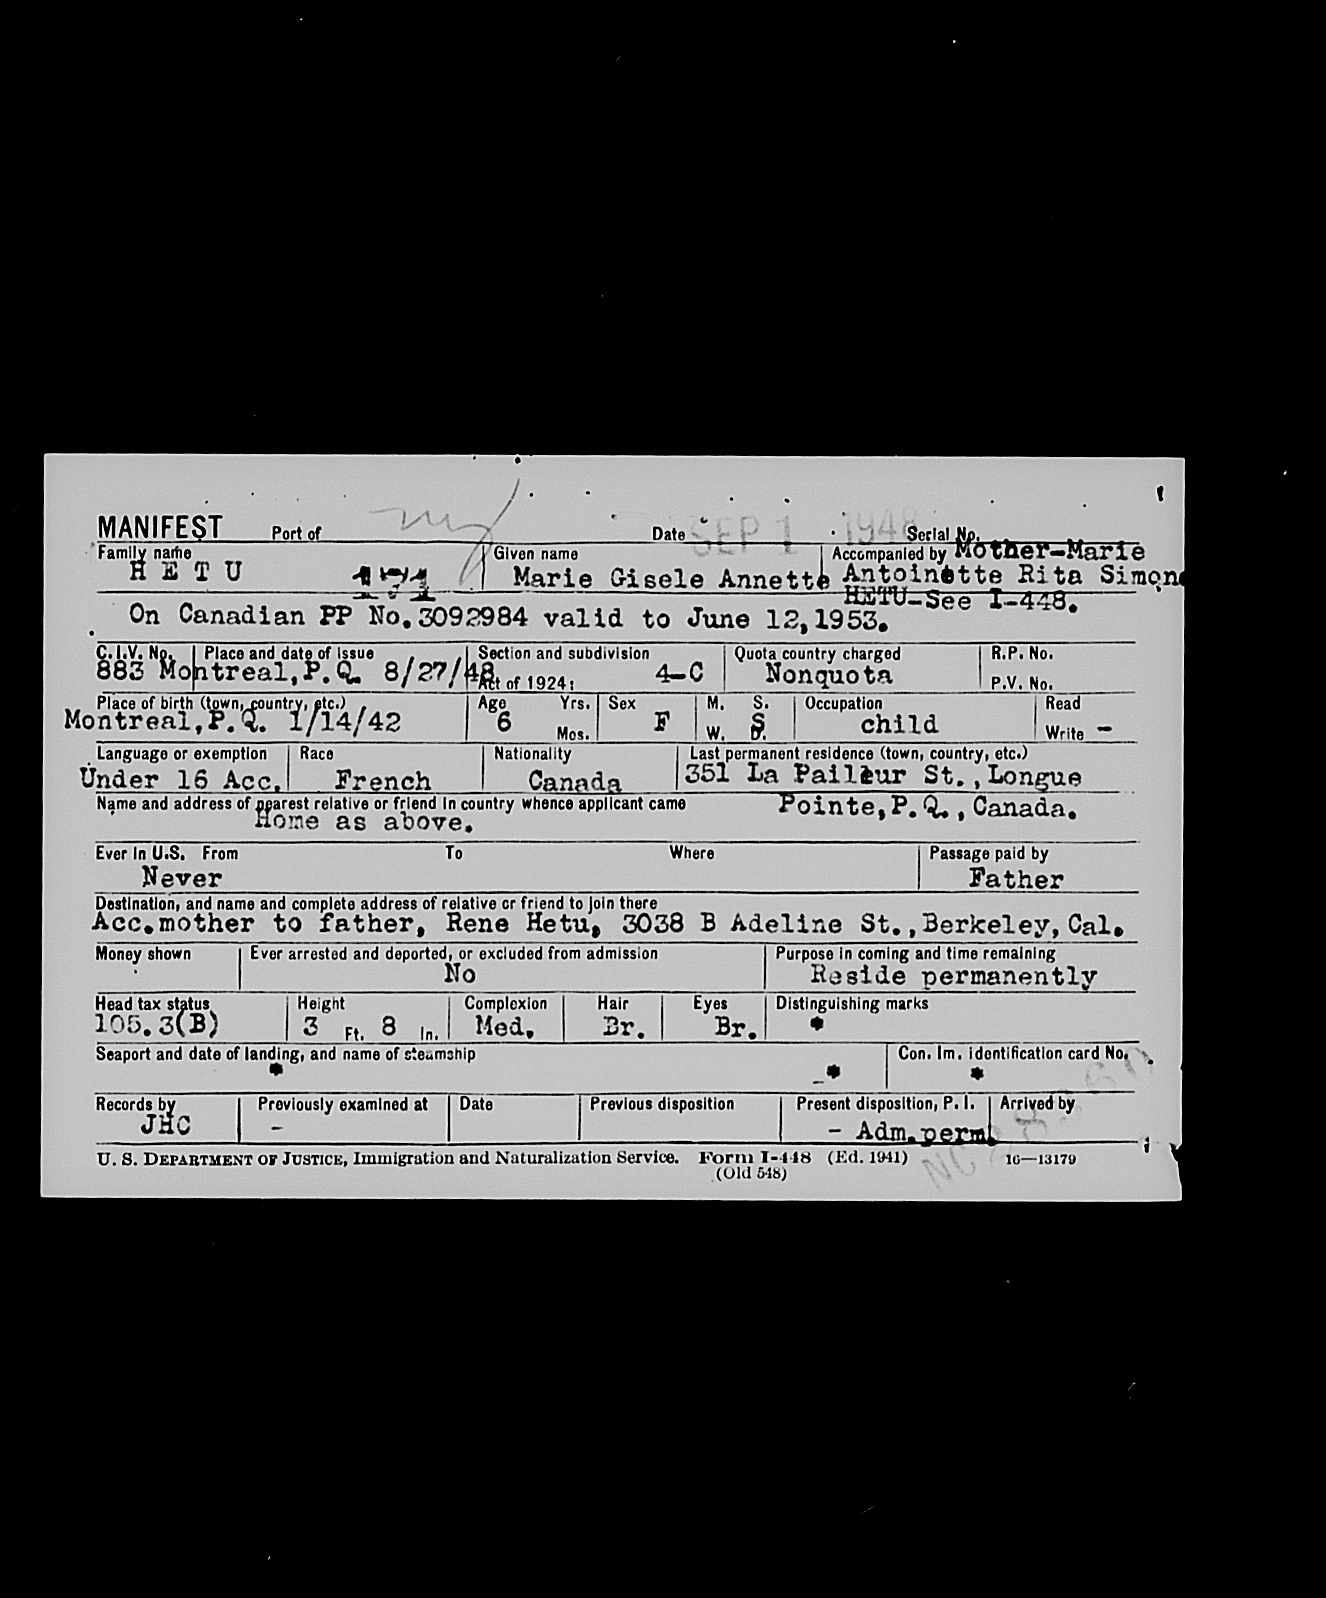 MANIFEST Port of Date SEP 1 1948 Serial No.
Family name Given name Accompanied by Mother-Marie
H E T U 171 Marie Gisele Annette Antoinette Rita Simone
HETU-See I-448.
On Canadian PP No.3092984 valid to June 12,1953.
C.I.V. No. Place and date of issue Section and subdivision Quota country charged R.P. No.
883 Montreal,P.Q. 8/27/48 Act of 1924: 4-C Nonquota P.V. No.
Place of birth (town, country, etc.) Age Yrs. Sex M. S. Occupation Read
Montreal,P.Q. 1/14/42 6 Mos. F W. S D. child Write -
Language or exemption Race Nationality Last permanent residence (town, country, etc.)
Under 16 Acc. French Canada 351 La Pailleur St.,Longue
Name and address of nearest relative or friend in country whence applicant came Pointe,P.Q.,Canada.
Home as above.
Ever in U.S. From To Where Passage paid by
Never Father
Destination, and name and complete address of relative or friend to join there
Acc.mother to father, Rene Hetu, 3038 B Adeline St.,Berkeley,Cal.
Money shown Ever arrested and deported, or excluded from admission Purpose in coming and time remaining
No Reside permanently
Head tax status Height Complexion Hair Eyes Distinguishing marks
105.3(B) 3 Ft. 8 In. Med. Br. Br. *
Seaport and date of landing, and name of steamship Con. Im. identification card No.
* -* *
Records by Previously examined at Date Previous disposition Present disposition, P. I. Arrived by
JHC - - Adm.perm.
U. S. DEPARTMENT OF JUSTICE, Immigration and Naturalization Service. Form I-448 (Ed. 1941) 16—13179
(Old 548)